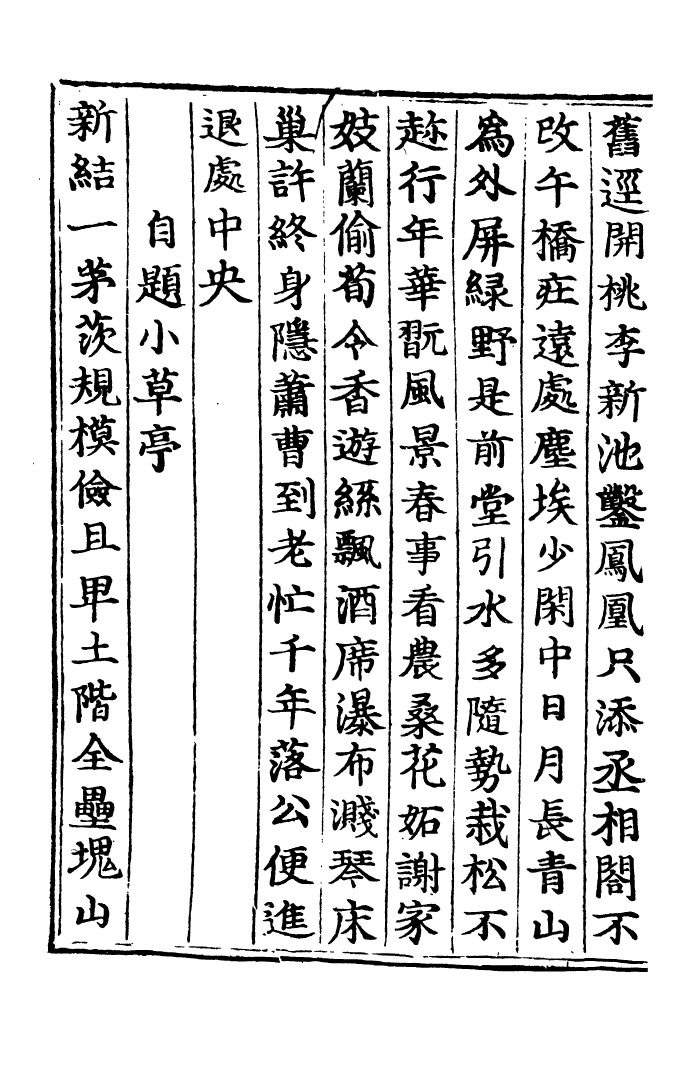 舊逕開桃李新池鑿鳳凰只添丞相閤不
改午橋庄遠處塵埃少閑中日月長青山
爲外屏綠野是前堂引水多隨勢栽松不
趂行年華翫風景春事看農桑花妬謝家
妓蘭偷荀令香遊絲飄酒席瀑布濺琴床
巢許終身隱蕭曹到老忙千年落公便進
退處中央
自題小草亭
新結一茅茨規模儉且卑土階全壘塊山